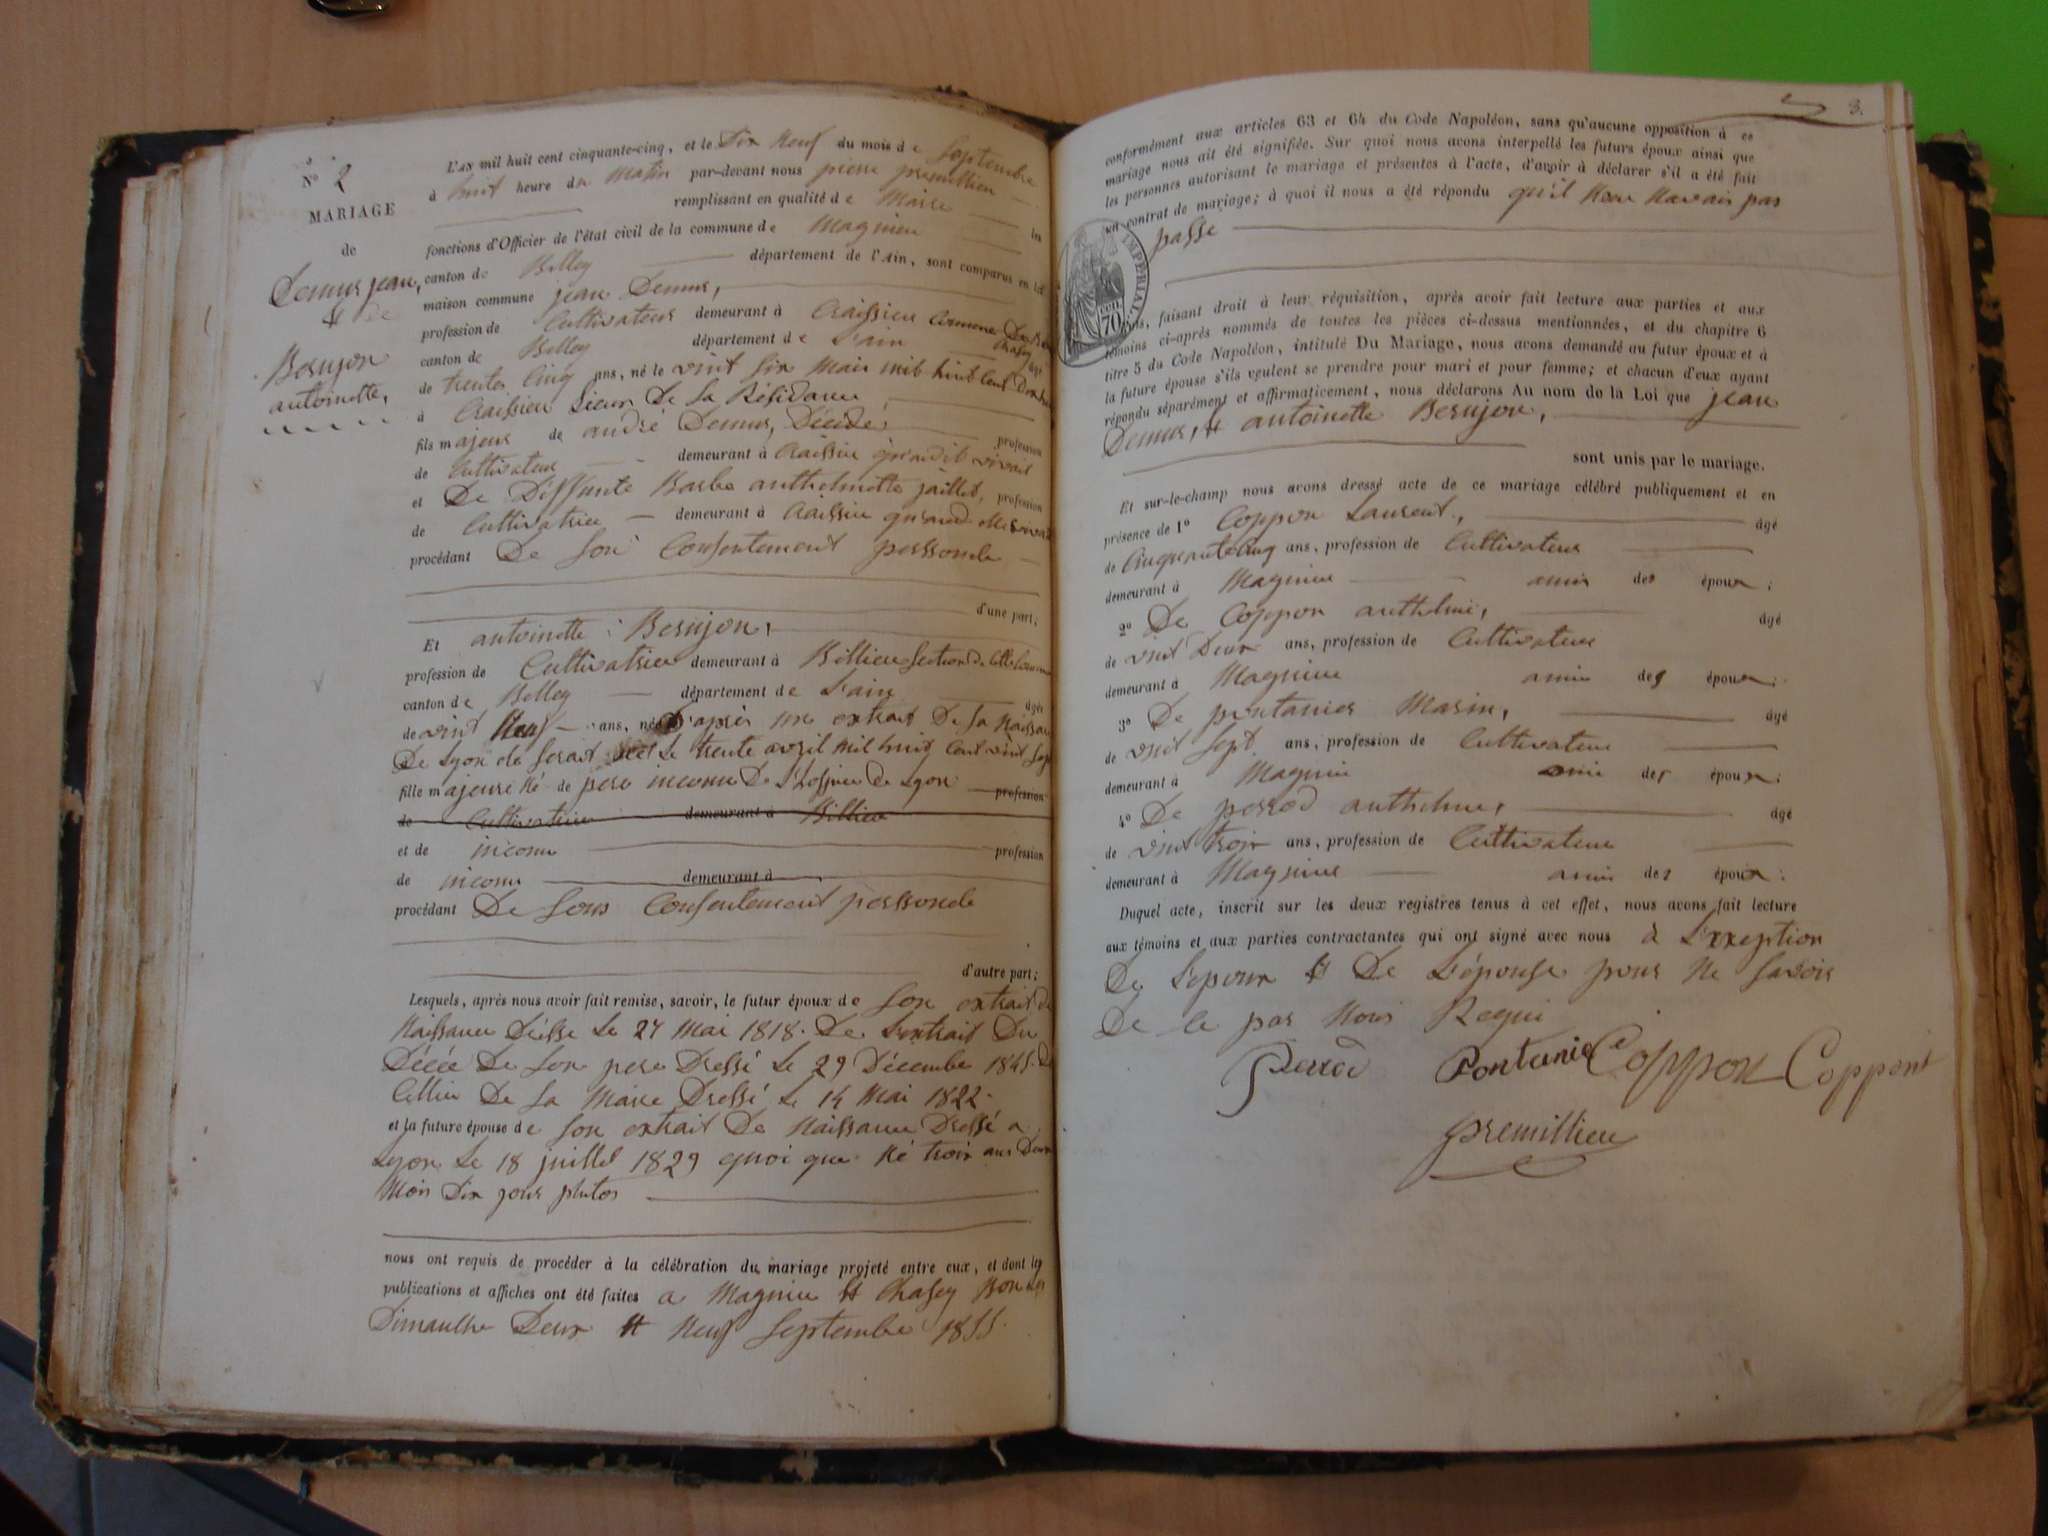 N° 2
MARIAGE
de
Demur jean,
et de
Berujon
antoinette,
L'AN mil huit cent cinquante-cinq, et le Dix Neuf du mois de Septembre
à huit heure du Matin par-devant nous pierre premillieu
remplissant en qualité de Maire les
fonctions d'Officier de l'état civil de la commune de Magnieu
canton de Belley département de l'Ain, sont comparus en la
maison commune jean Demur,
profession de Cultivateur demeurant à Craissieu Commune De
canton de Belley département de L'ain Chasey âgé
de trente Cinq ans, né le vint six Mai mil huit Cent
à Craissieu Lieux De Sa Résidance
fils majeur de andré Demur, Décédé, profession
de Cultivateur demeurant à Craissieu quandil vivait
et De Deffunte Barbe anthelmette jaillet, profession
de Cultivatrice demeurant à Craissieu quand elle vivait
procédant De Son Consentement perssonele
d'une part;
Et antoinette Berujon,
profession de Cultivatrice demeurant à Billieu Section de Cette Commune
canton de Belley département de L'ain âgée
de vint Neuf ans, née D'après un extrait De Sa Naissance
De Lyon de Serait née Le trente avril mil huit Cent vint Sept
fille majeure Né de pere inconnu De L'Hospice de Lyon profession
de Cultivatrice demeurant à Billieu
et de inconu profession
de inconu demeurant à
procédant De Sons Consentement perssonele
d'autre part;
Lesquels, après nous avoir fait remise, savoir, le futur époux de Son extrait de
Naissance Dréssé Le 27 Mai 1818. De L'extrait Du
Décée De Son pere Dressé Le 29 Décembre 1845. De
Cellui De Sa Maire Dressé Le 14 Mai 1822.
et la future épouse de Son extrait De Naissance Dressé a
Lyon Le 18 juillet 1829 quoi que Né trois ans Deux
Mois Dix jour plutos
nous ont requis de procéder à la célébration du mariage projeté entre eux, et dont les
publications et affiches ont été faites a Magnieu et Chasey Bon Les
Dimanche Deux et Neuf Septembre 1855.
3.
conformément aux articles 63 et 64 du Code Napoléon, sans qu'aucune opposition à ce
mariage nous ait été signifiée. Sur quoi nous avons interpellé les futurs époux ainsi que
les personnes autorisant le mariage et présentes à l'acte, d'avoir à déclarer s'il a été fait
un contrat de mariage; à quoi il nous a été répondu qu'il Nen Navais pas
passé
IMPERIAL
70 CEN.
Nous, faisant droit à leur réquisition, après avoir fait lecture aux parties et aux
témoins ci-après nommés de toutes les pièces ci-dessus mentionnées, et du chapitre 6
titre 5 du Code Napoléon, intitulé Du Mariage, nous avons demandé au futur époux et à
la future épouse s'ils veulent se prendre pour mari et pour femme; et chacun d'eux ayant
répondu séparément et affirmativement, nous déclarons Au nom de la Loi que jean
Demur, et antoinette Berujon,
sont unis par le mariage.
Et sur-le-champ nous avons dressé acte de ce mariage célébré publiquement et en
présence de 1° Coppon Laurent, âgé
de Cinquante Cinq ans, profession de Cultivateur
demeurant à Magnieu amis des époux;
2° De Coppon anthelme, âgé
de vint Deux ans, profession de Cultivateur
demeurant à Magnieu amis des époux;
3° De pontanier Marin, âgé
de vint sept ans, profession de Cultivateur
demeurant à Magnieu amis des époux;
4° De perrod anthelme, âgé
de vint trois ans, profession de Cultivateur
demeurant à Magnieu amis des époux;
Duquel acte, inscrit sur les deux registres tenus à cet effet, nous avons fait lecture
aux témoins et aux parties contractantes qui ont signé avec nous à L'exxeption
De L'epoux et De L'épouse pour Ne Savoir
De ce par Nous Requi
Perrod Pontanier Coppon Coppont
premillieu